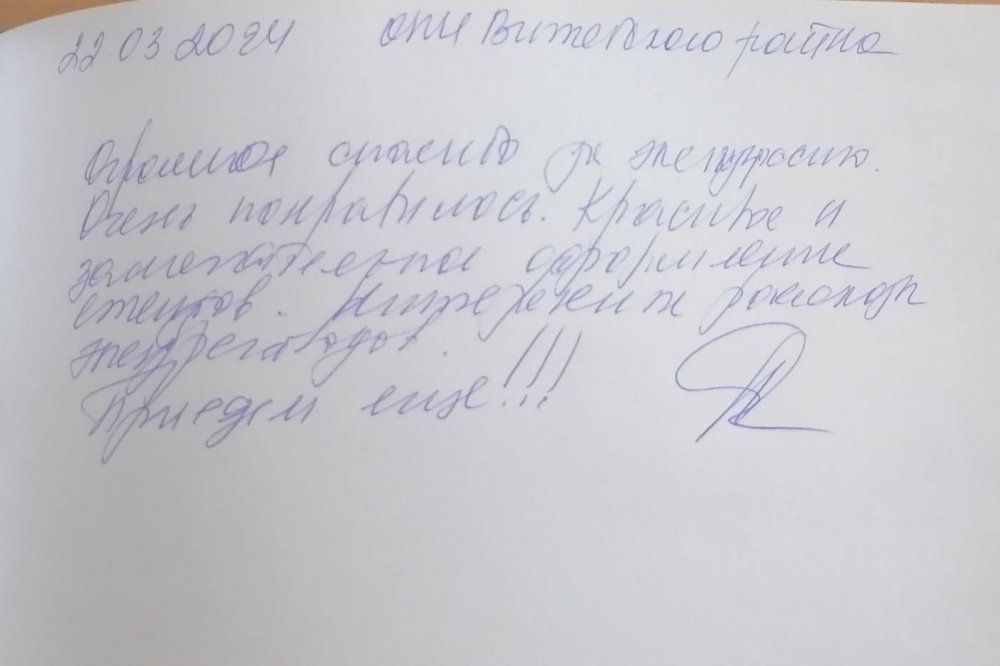 22 03 2024 ОПЧ Витебского района
Огромное спасибо за экскурсию.
Очень понравилось. Красивое и
замечательное оформление
стендов. Интересный рассказ
экскурсоводов.
Приедем еще!!!